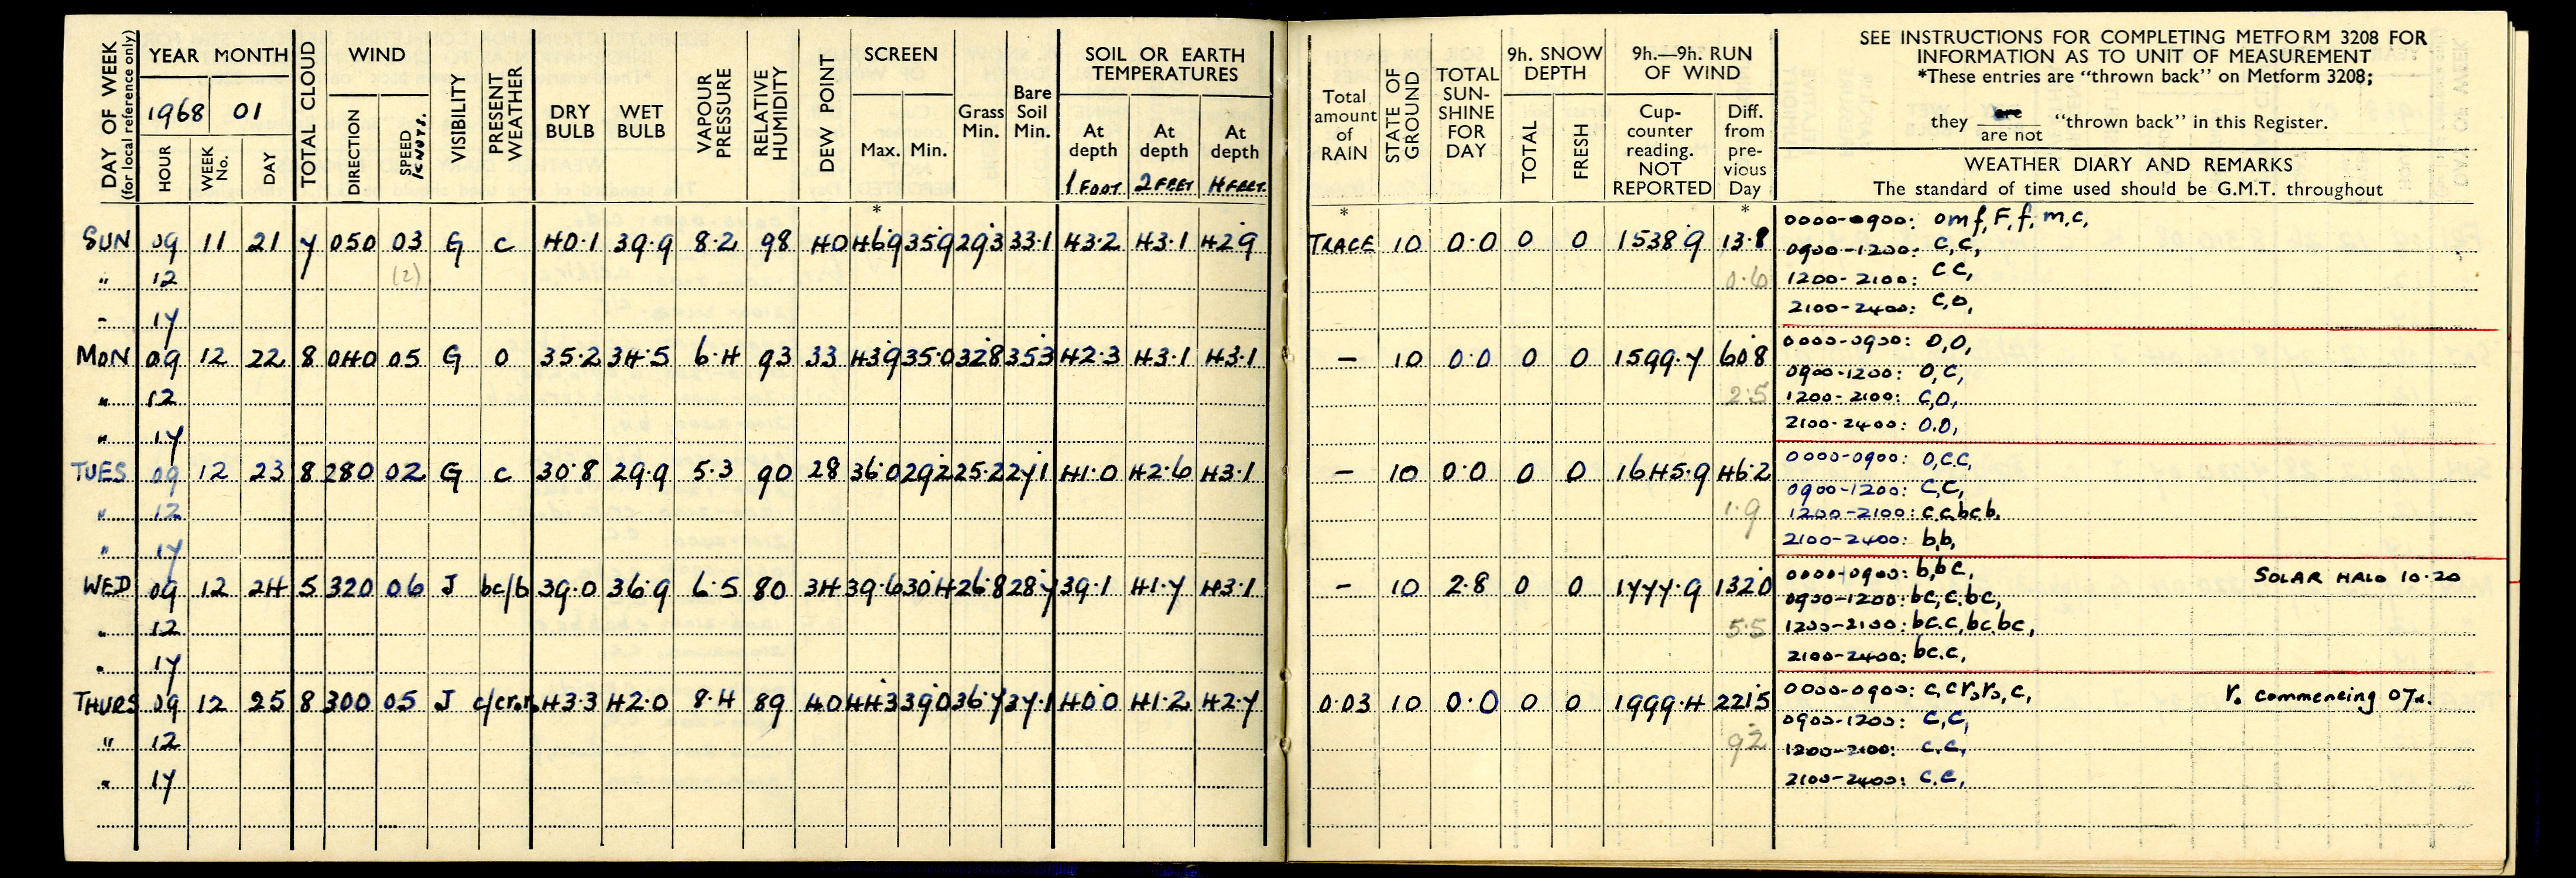 DAY OF WEEK (for local reference only)
YEAR MONTH
1968 01
HOUR WEEK No. DAY
TOTAL CLOUD
WIND
DIRECTION SPEED KNOTS.
VISIBILITY
PRESENT WEATHER
DRY BULB WET BULB
VAPOUR PRESSURE
RELATIVE HUMIDITY
DEW POINT
SCREEN
Max. Min.
Grass Min. Bare Soil Min.
SOIL OR EARTH TEMPERATURES
At depth 1 FOOT At depth 2 FEET At depth 4 FEET.
Total amount of RAIN
STATE OF GROUND
TOTAL SUN-SHINE FOR DAY
9h. SNOW DEPTH
TOTAL FRESH
9h.—9h. RUN OF WIND
Cup-counter reading. NOT REPORTED
Diff. from pre-vious Day
SEE INSTRUCTIONS FOR COMPLETING METFORM 3208 FOR
INFORMATION AS TO UNIT OF MEASUREMENT
*These entries are “thrown back” on Metform 3208;
they are / are not “thrown back” in this Register.
WEATHER DIARY AND REMARKS
The standard of time used should be G.M.T. throughout
* * *
SUN 09 11 21 7 050 03 G c 40.1 39.9 8.2 98 40 46.9 35.9 29.3 33.1 43.2 43.1 42.9 TRACE 10 0.0 0 0 1538.9 13.8 0000-0900: omf, F, f, m, c,
0900-1200: c, c,
" 12 (2) 0.6 1200-2100: c c,
" 17 2100-2400: c, o,
MON 09 12 22 8 040 05 G o 35.2 34.5 6.4 93 33 43.9 35.0 32.8 35.3 42.3 43.1 43.1 — 10 0.0 0 0 1599.7 60.8 0000-0900: o, o,
0900-1200: o, c,
" 12 2.5 1200-2100: c, o,
" 17 2100-2400: o.o,
TUES 09 12 23 8 280 02 G c 30.8 29.9 5.3 90 28 36.0 29.2 25.2 27.1 41.0 42.6 43.1 — 10 0.0 0 0 1645.9 46.2 0000-0900: o, c.c,
0900-1200: c, c,
" 12 1.9 1200-2100: c.c.bc.b,
" 17 2100-2400: b,b,
WED 09 12 24 5 320 06 J bc/b 39.0 36.9 6.5 80 34 39.6 30.4 26.8 28.7 39.1 41.7 43.1 — 10 2.8 0 0 1777.9 132.0 0000-0900: b, bc, SOLAR HALO 10.20
0900-1200: bc, c. bc,
" 12 5.5 1200-2100: bc.c, bc.bc,
" 17 2100-2400: bc.c,
THURS 09 12 25 8 300 05 J 43.3 42.0 8.4 89 40 44.3 39.0 36.7 37.1 40.0 41.2 42.7 0.03 10 0.0 0 0 1999.4 221.5 0000-0900: c, c r₀ r₀, c, r₀ commencing 07
0900-1200: c, c,
" 12 9.2 1200-2100: c.c,
" 17 2100-2400: c.c,